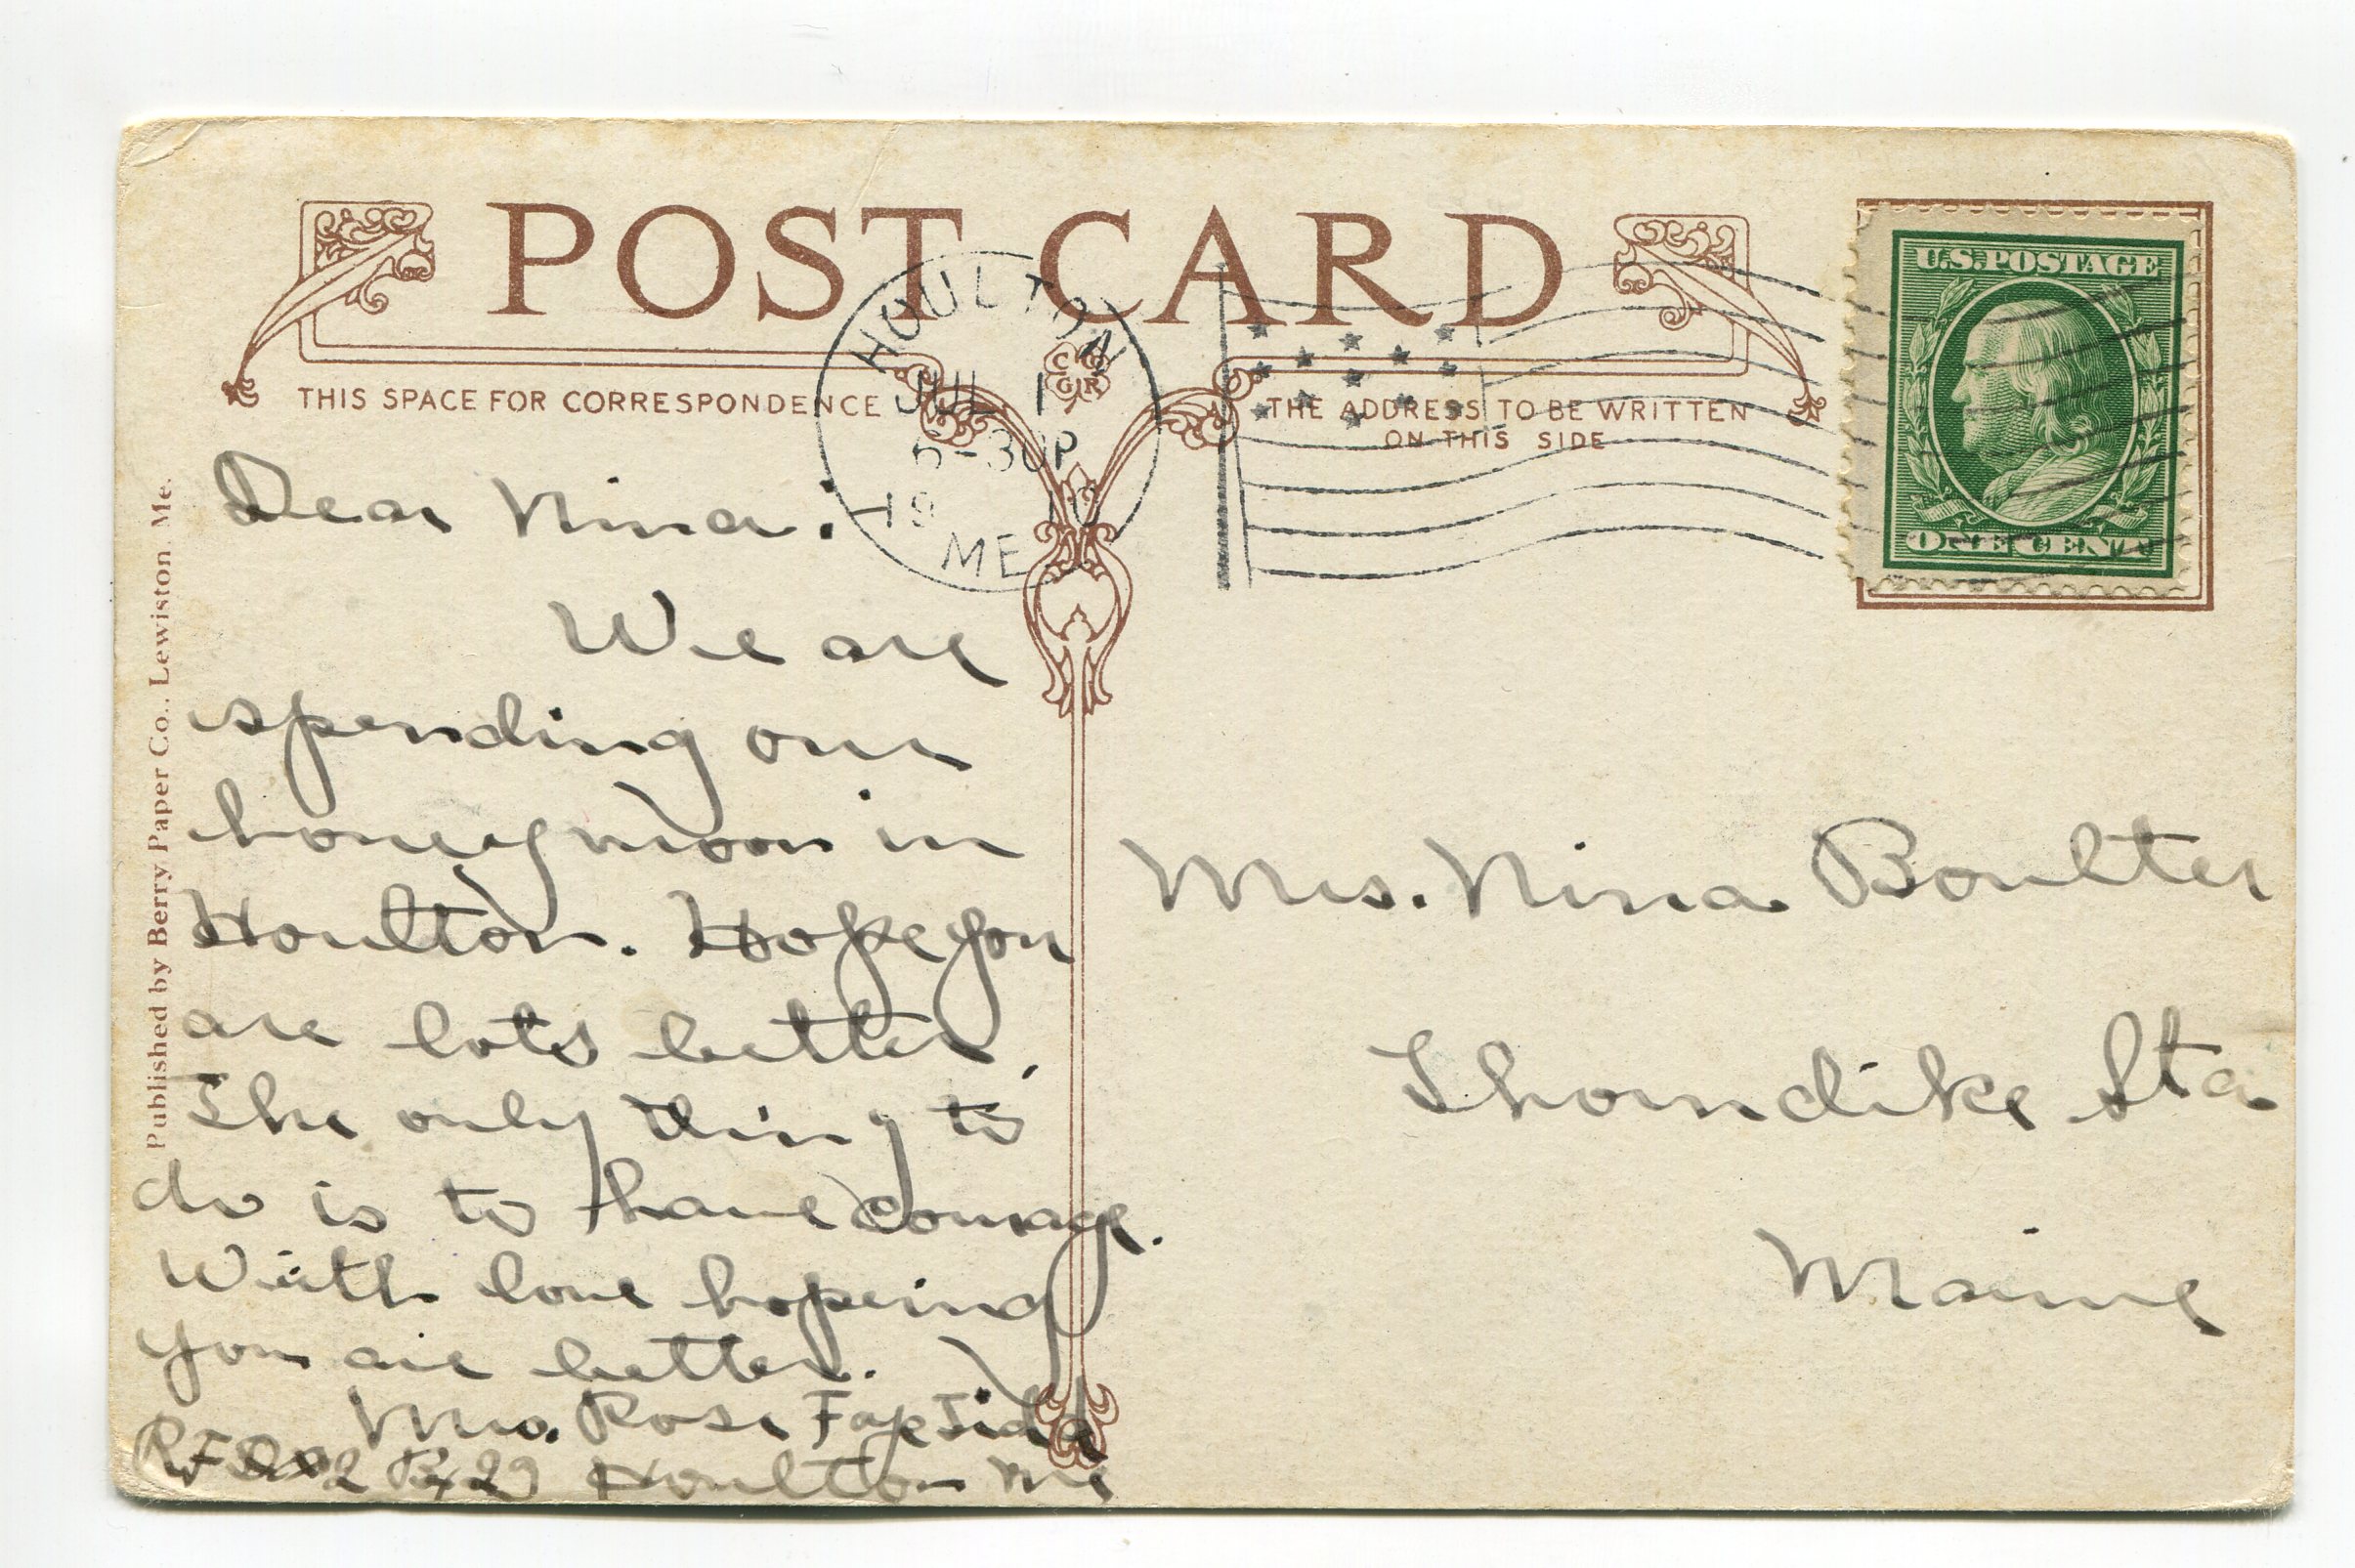 POST CARD
THIS SPACE FOR CORRESPONDENCE
THE ADDRESS TO BE WRITTEN
ON THIS SIDE
U.S. POSTAGE
ONE CENT
HOULTON
JUL 1
5-30P
1910
ME
Published by Berry Paper Co., Lewiston, Me.
Dear Nina:
We are
spending our
honeymoon in
Houlton. Hope you
are lots better.
The only thing to
do is to have courage.
With love hopeing
you are better.
Mrs. Rose Faye
Houlton Me
Mrs. Nina Boulter
Thorndike Sta
Maine